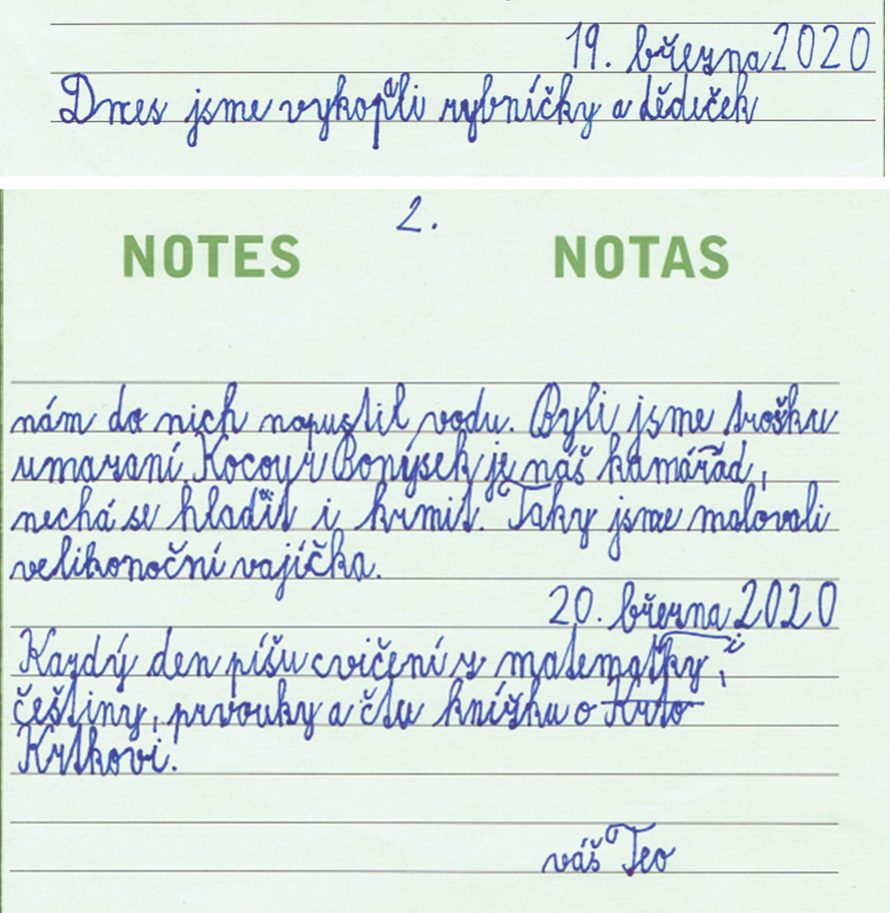 19. března 2020
Dnes jsme vykopali rybníčky a dědeček
2.
NOTES NOTAS
nám do nich napustil vodu. Byli jsme trošku
umazaní. Kocour Bonýsek je náš kamarád,
nechá se hladit i krmit. Taky jsme malovali
velikonoční vajíčka.
20. března 2020
Každý den píšu cvičení z matematiky,
češtiny, prvouky a čtu knížku o Krto
Krtkovi.
váš Teo